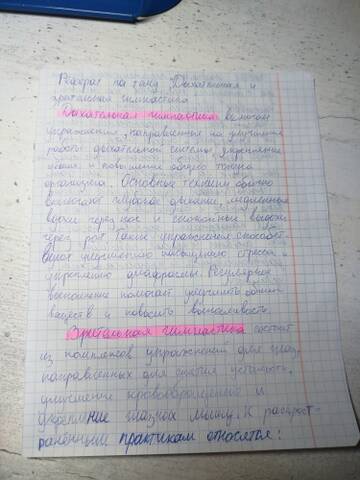 Реферат на тему Дыхательная и
зрительная гимнастика
Дыхательная гимнастика включает
упражнения, направленные на улучшение
работы дыхательной системы, укрепление
лёгких и повышение общего тонуса
организма. Основные техники обычно
включают глубокое дыхание, медленные
вдохи через нос и спокойные выдохи
через рот. Такие упражнения способст
вуют уменьшению стресса и
укреплению диафрагмы. Регулярное
выполнение помогает улучшить обмен
веществ и повысить выносливость.
Зрительная гимнастика состоит
из комплексов упражнений для глаз,
направленных для снятия усталости,
улучшение кровообращения и
укрепление глазных мышц. К распрост-
ранённым практикам относятся: